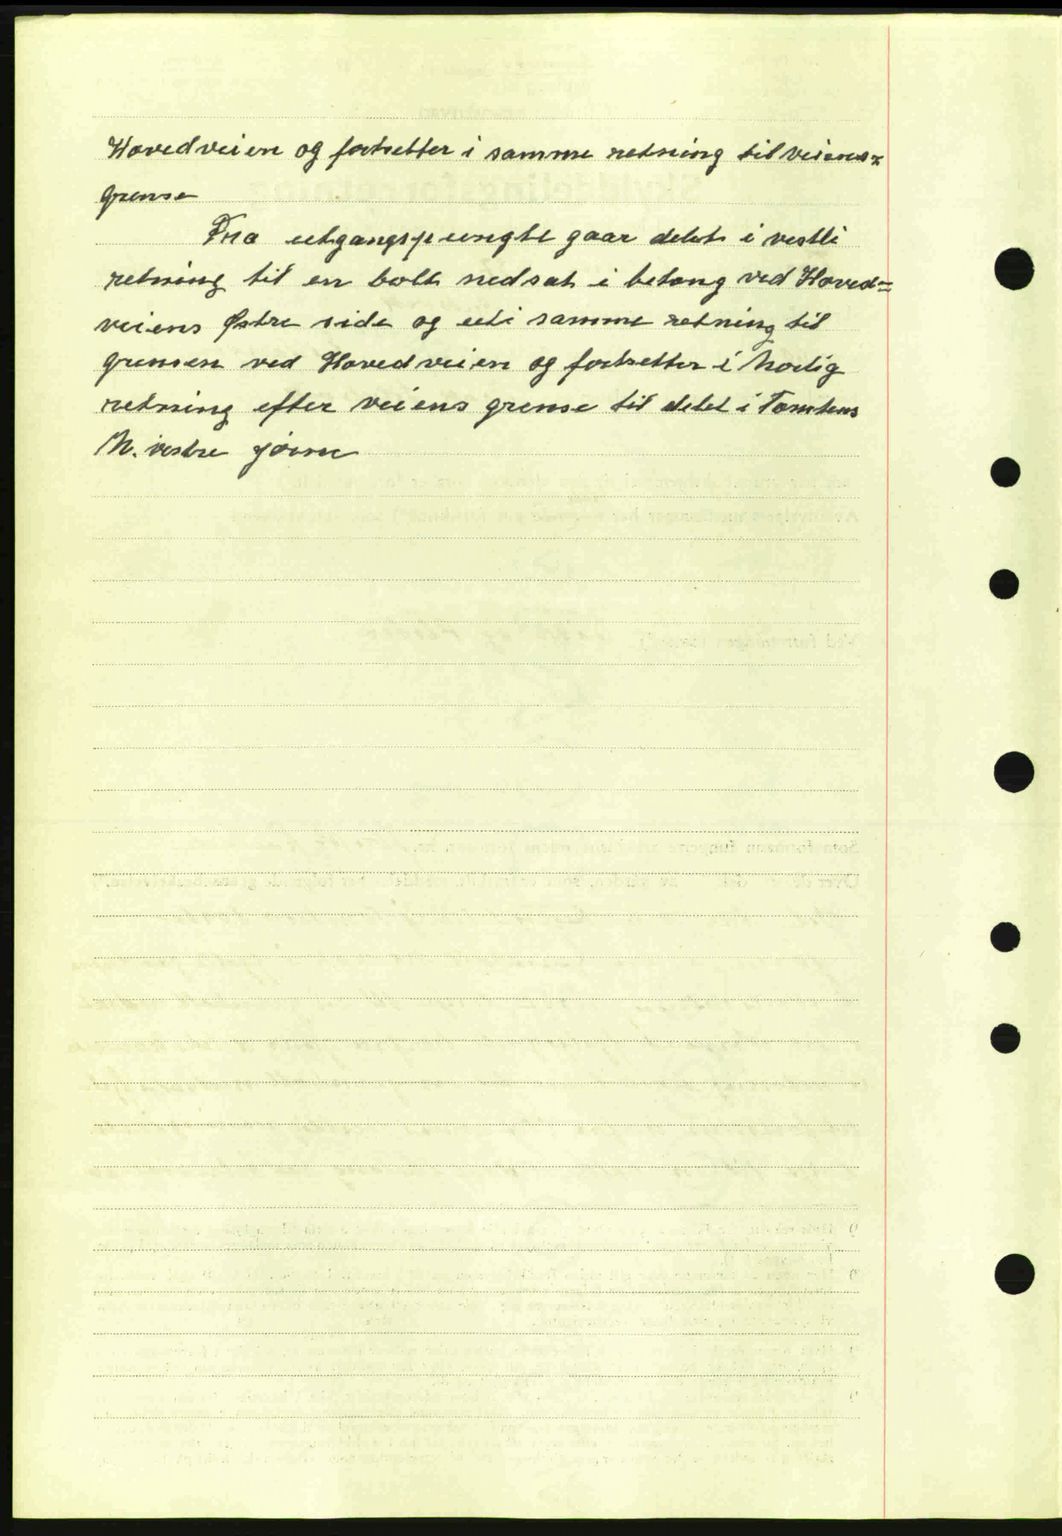 Hovedveien og fortsetter i samme retning til veiens=
grense
Fra utgangspungte gaar delet i vestli
retning til en bolt nedsat i betong ved Hoved=
veiens Østre side og uti samme retning til
grensen ved Hovedveien og fortsetter i Nordig
retning efter veiens grense til delet i Tomtens
N. vestre jörne